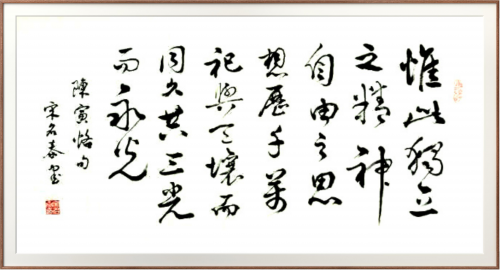 惟此獨立
之精神
自由之思
想歷千萬
祀與天壤而
同久共三光
而永光
陳寅恪句
宋名書